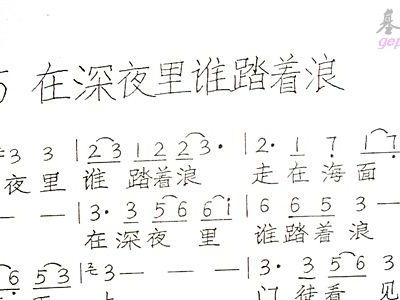 5 在深夜里谁踏着浪
#3 3 | 2 3 1 2 2 3· | 2· 1 7 1 7
夜里 谁 踏着浪 走在海面
— — | 3· 3 5 6 6 i | 6 6 5 3 —
在深夜 里 谁踏着浪
6 5 3 | 3 — — | 3· 3 5 6 5 3
门 徒看 见